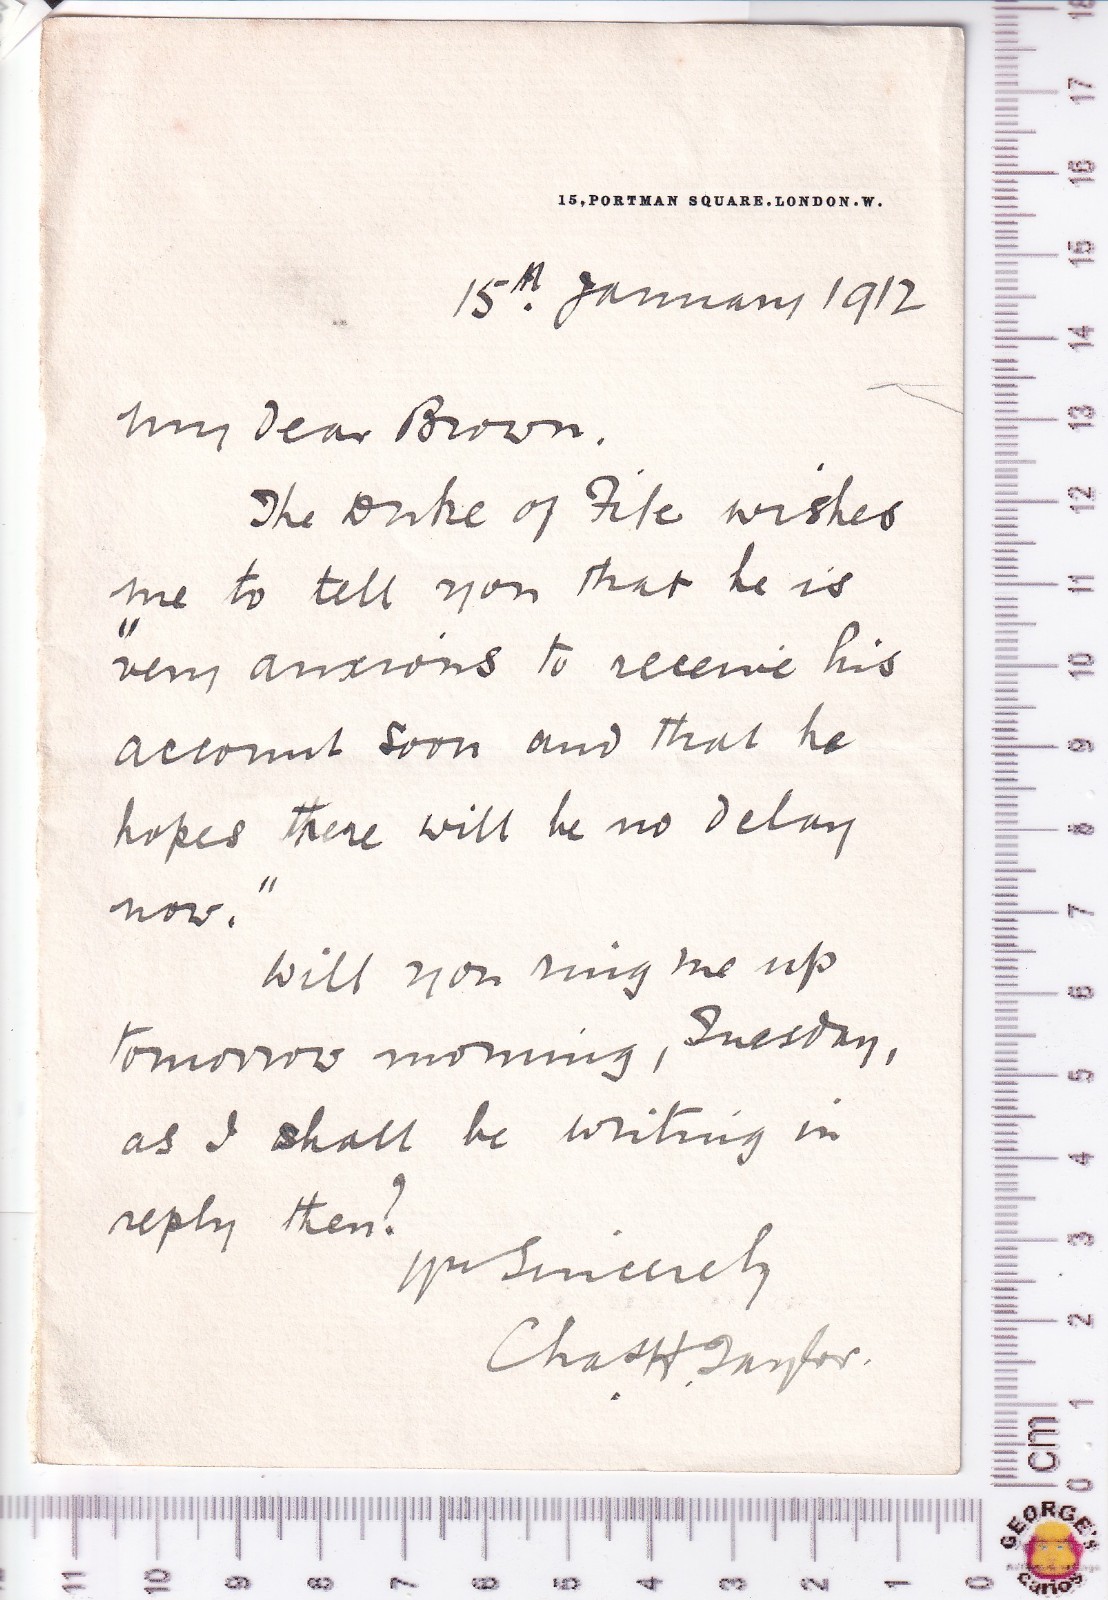 15, PORTMAN SQUARE. LONDON. W.
15th. January 1912
My dear Brown.
The Duke of Fife wishes
me to tell you that he is
"very anxious to receive his
account soon and that he
hopes there will be no delay
now."
Will you ring me up
tomorrow morning, Tuesday,
as I shall be writing in
reply then?
Yrs Sincerely
Chas. H. Taylor.
18
17
16
15
14
13
12
11
10
9
8
7
6
5
4
3
2
1
0
cm
11 10 9 8 7 6 5 4 3 2 1 0
GEORGE'S
Curios